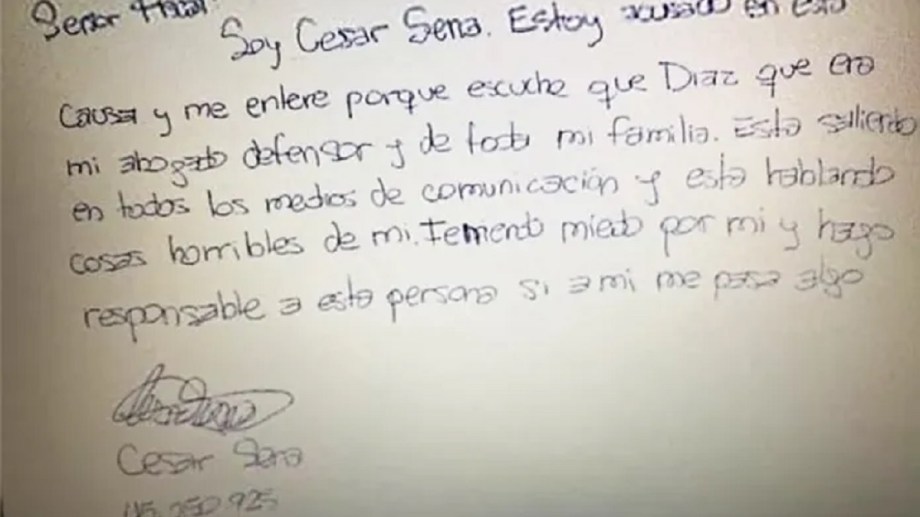 Señor Fiscal
Soy Cesar Sena. Estoy acusado en esta
causa y me entere porque escuche que Diaz que era
mi abogado defensor y de toda mi familia. Esta saliendo
en todos los medios de comunicación y esta hablando
cosas horribles de mi. Temiendo miedo por mi y hago
responsable a esta persona si a mi me pasa algo
Cesar Sena
45.250.925